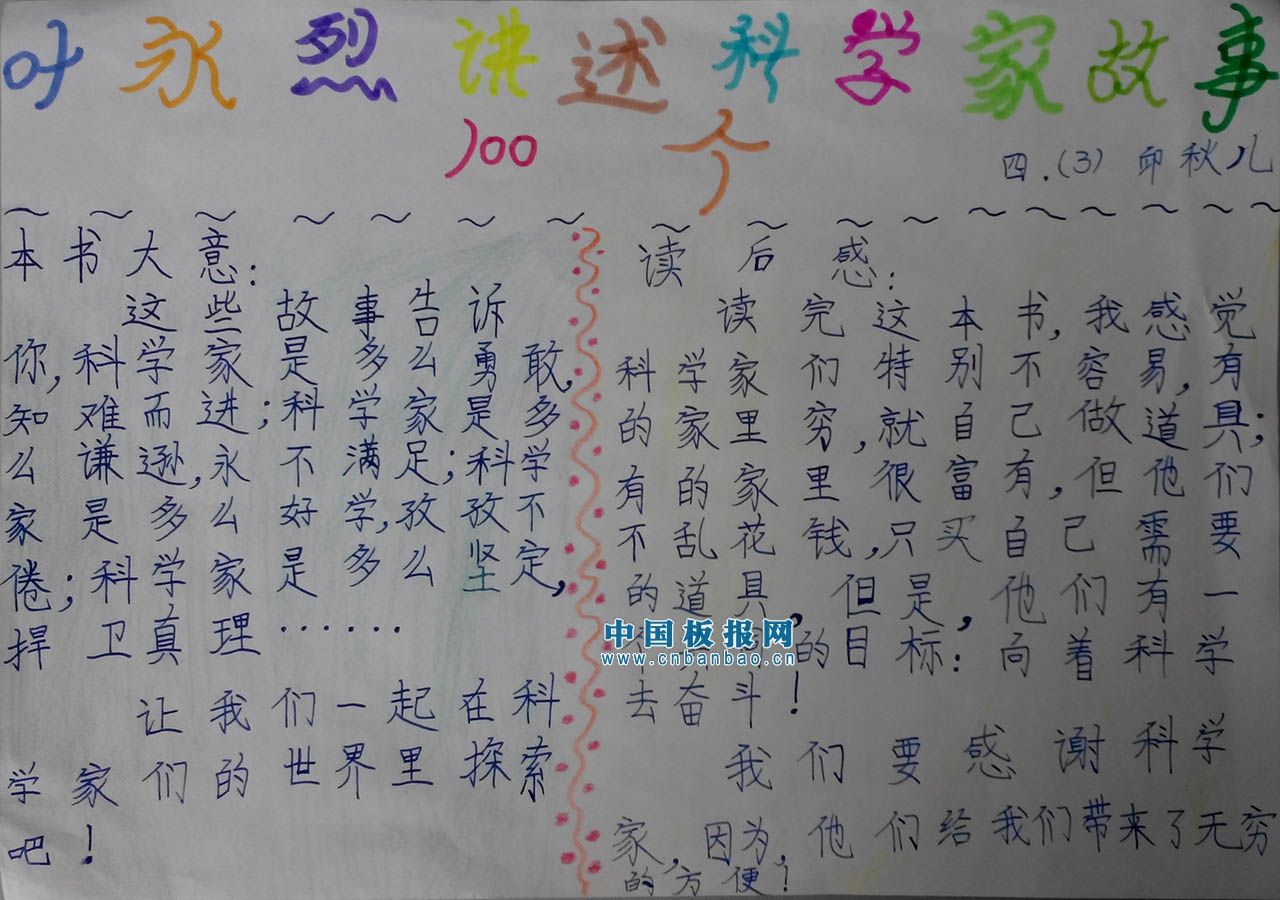 叶永烈讲述科学家故事
100个
四.(3) 印秋儿
本书大意:
这些故事告诉
你,科学家是多么勇敢,
知难而进;科学家是多
么谦逊,永不满足;科学
家是多么好学,孜孜不
倦;科学家是多么坚定,
捍卫真理……
让我们一起在科
学家们的世界里探索
吧!
读后感:
读完这本书,我感觉
科学家们特别不容易,有
的家里穷,就自己做道具;
有的家里很富有,但他们
不乱花钱,只买自己需要
的道具,但是,他们有一
的目标:向着科学
去奋斗!
我们要感谢科学
家,因为,他们给我们带来了无穷
的方便!
中国板报网
www.cnbanbao.cn